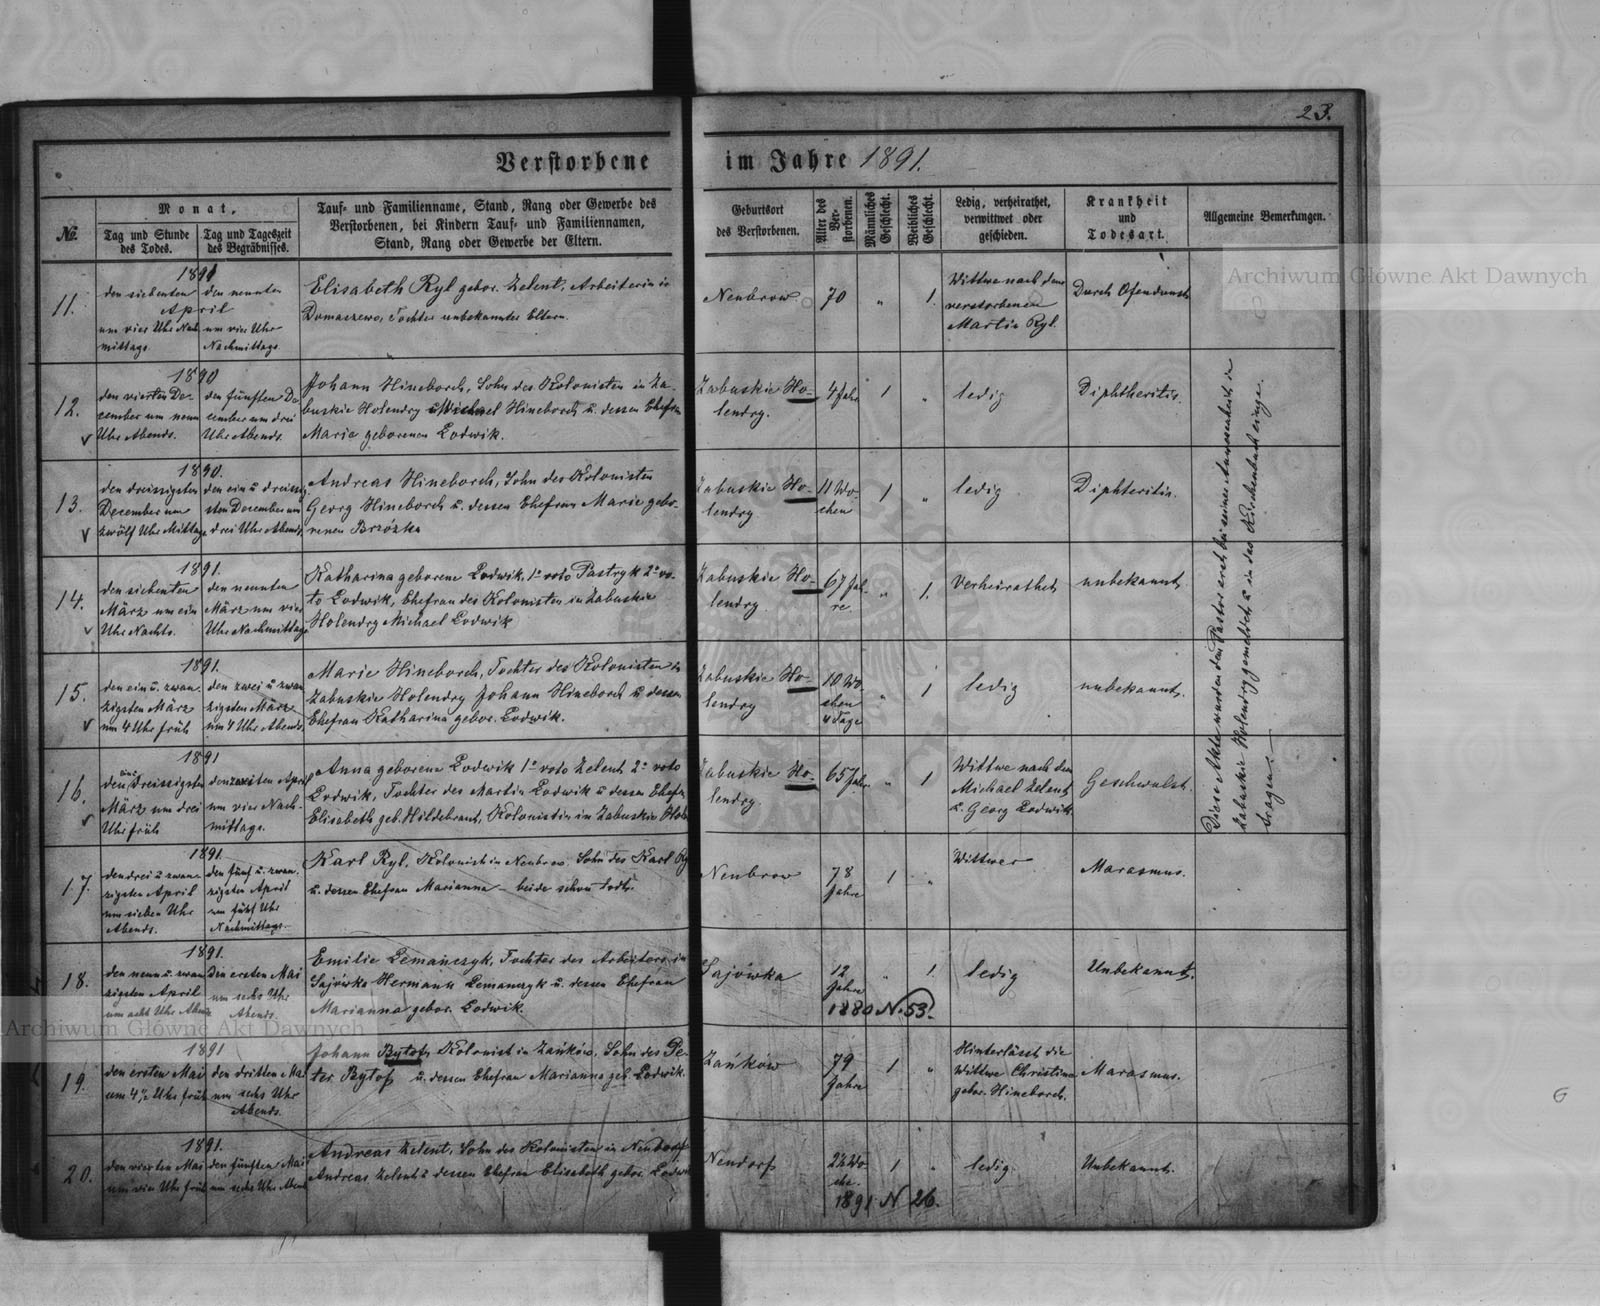 23.
Verstorbene im Jahre 1891.
No.
Monat.
Tag und Stunde des Todes.
Tag und Tageszeit des Begräbnisses.
Tauf- und Familienname, Stand, Rang oder Gewerbe des
Verstorbenen, bei Kindern Tauf- und Familiennamen,
Stand, Rang oder Gewerbe der Eltern.
Geburtsort
des Verstorbenen.
Alter des Verstorbenen.
Männliches Geschlecht.
Weibliches Geschlecht.
Ledig, verheirathet,
verwittwet oder
geschieden.
Krankheit
und
Todesart.
Allgemeine Bemerkungen.
Archiwum Główne Akt Dawnych
11.
1891
den siebenten
April
um vier Uhr Nach-
mittags.
den neunten
um vier Uhr
Nachmittags.
Elisabeth Ryl gebor. Zelent, Arbeiterin in
Domaszewo, Tochter unbekannter Eltern.
Neubrow
70
„
1.
Wittwe nach dem
verstorbenen
Martin Ryl.
Durch Ofendunst
12.
1890
den vierten De-
cember um neun
Uhr Abends.
den fünften De
cember um drei
Uhr Abends.
Johann Hineborch, Sohn des Kolonisten in Za-
buskie Holendry Michael Hineborch u. dessen Ehefrau
Marie geborenen Lodwik.
Zabuskie Ho-
lendry.
4 Jahr
1
„
ledig
Diphtheritis.
13.
1890.
den dreissigsten
December um
zwölf Uhr Mittag
den ein u dreissig
sten December um
drei Uhr Abends
Andreas Hineborch, Sohn des Kolonisten
Georg Hineborch u. dessen Ehefrau Marie gebo-
renen Brzózka
Zabuskie Ho-
lendry
11 Wo-
chen
1
„
ledig
Diphteritis.
14.
1891.
den siebenten
März um ein
Uhr Nachts.
den neunten
März um vier
Uhr Nachmittags
Katharina geborene Lodwik, 1o voto Pastryk 2o vo-
to Lodwik, Ehefrau des Kolonisten in Zabuskie
Holendry Michael Lodwik
Zabuskie Ho-
lendry
67 Jah-
re.
„
1.
Verheirathet
unbekannt.
15.
1891.
den ein u. zwan-
zigsten März
um 4 Uhr früh
den zwei u zwan
zigsten März
um 4 Uhr Abends.
Marie Hineborch, Tochter des Kolonisten in
Zabuskie Holendry Johann Hineborch u dessen
Ehefrau Katharina gebor. Lodwik.
Zabuskie Ho-
lendry
10 Wo-
chen
4 Tage
„
1
ledig
unbekannt.
16.
1891
den ein u. dreissigsten
März um drei
Uhr früh
den zweiten April
um vier Nach-
mittags.
Anna geborene Lodwik 1o voto Zelent 2o voto
Lodwik, Tochter des Martin Lodwik u dessen Ehefr
Elisabeth geb. Hildebrant, Kolonistin in Zabuskie Hole
Zabuskie Ho-
lendry.
65 Jahr
„
1
Wittwe nach dem
Michael Zelent
u. Georg Lodwik.
Geschwulst.
Diese Akte wurden dem Pastor erst bei seiner Anwesenheit in
Zabuskie Holendry gemeldet u. in das Kirchenbuch einge-
tragen.
17.
1891.
den drei u zwan-
zigsten April
um sieben Uhr
Abends.
den fünf u. zwan-
zigsten April
um fünf Uhr
Nachmittags.
Karl Ryl, Kolonist in Neubrow, Sohn des Karl Ry
u. dessen Ehefrau Marianna - beide schon todt.
Neubrow
78
Jahre
1
„
Wittwer
Marasmus.
18.
1891.
den neun u. zwan
zigsten April
um acht Uhr Abends
den ersten Mai
um sechs Uhr
Abends.
Emilie Lemanczyk, Tochter des Arbeiters in
Sajówka Hermann Lemanczyk u. dessen Ehefrau
Marianna gebor. Lodwik.
Sajówka
12
Jahre
1880 N. 53.
„
1.
ledig
Unbekannt.
Archiwum Główne Akt Dawnych
19.
1891
den ersten Mai
um 4 1/2 Uhr früh
den dritten Mai
um sechs Uhr
Abends.
Johann Bytof, Kolonist in Zańków, Sohn des Pe-
ter Bytof u. dessen Ehefrau Marianna geb. Lodwik.
Zańków
79
Jahre
1
„
Hinterlässt die
Wittwe Christina
gebor. Hineborch.
Marasmus.
20.
1891.
den vierten Mai
um vier Uhr früh
den fünften Mai
um sechs Uhr Abend
Andreas Zelent, Sohn des Kolonisten in Neudorf
Andreas Zelent u dessen Ehefrau Elisabeth gebor. Lodwi
Neudorf
Wo-
che.
1891 N 26.
1
„
ledig
Unbekannt.